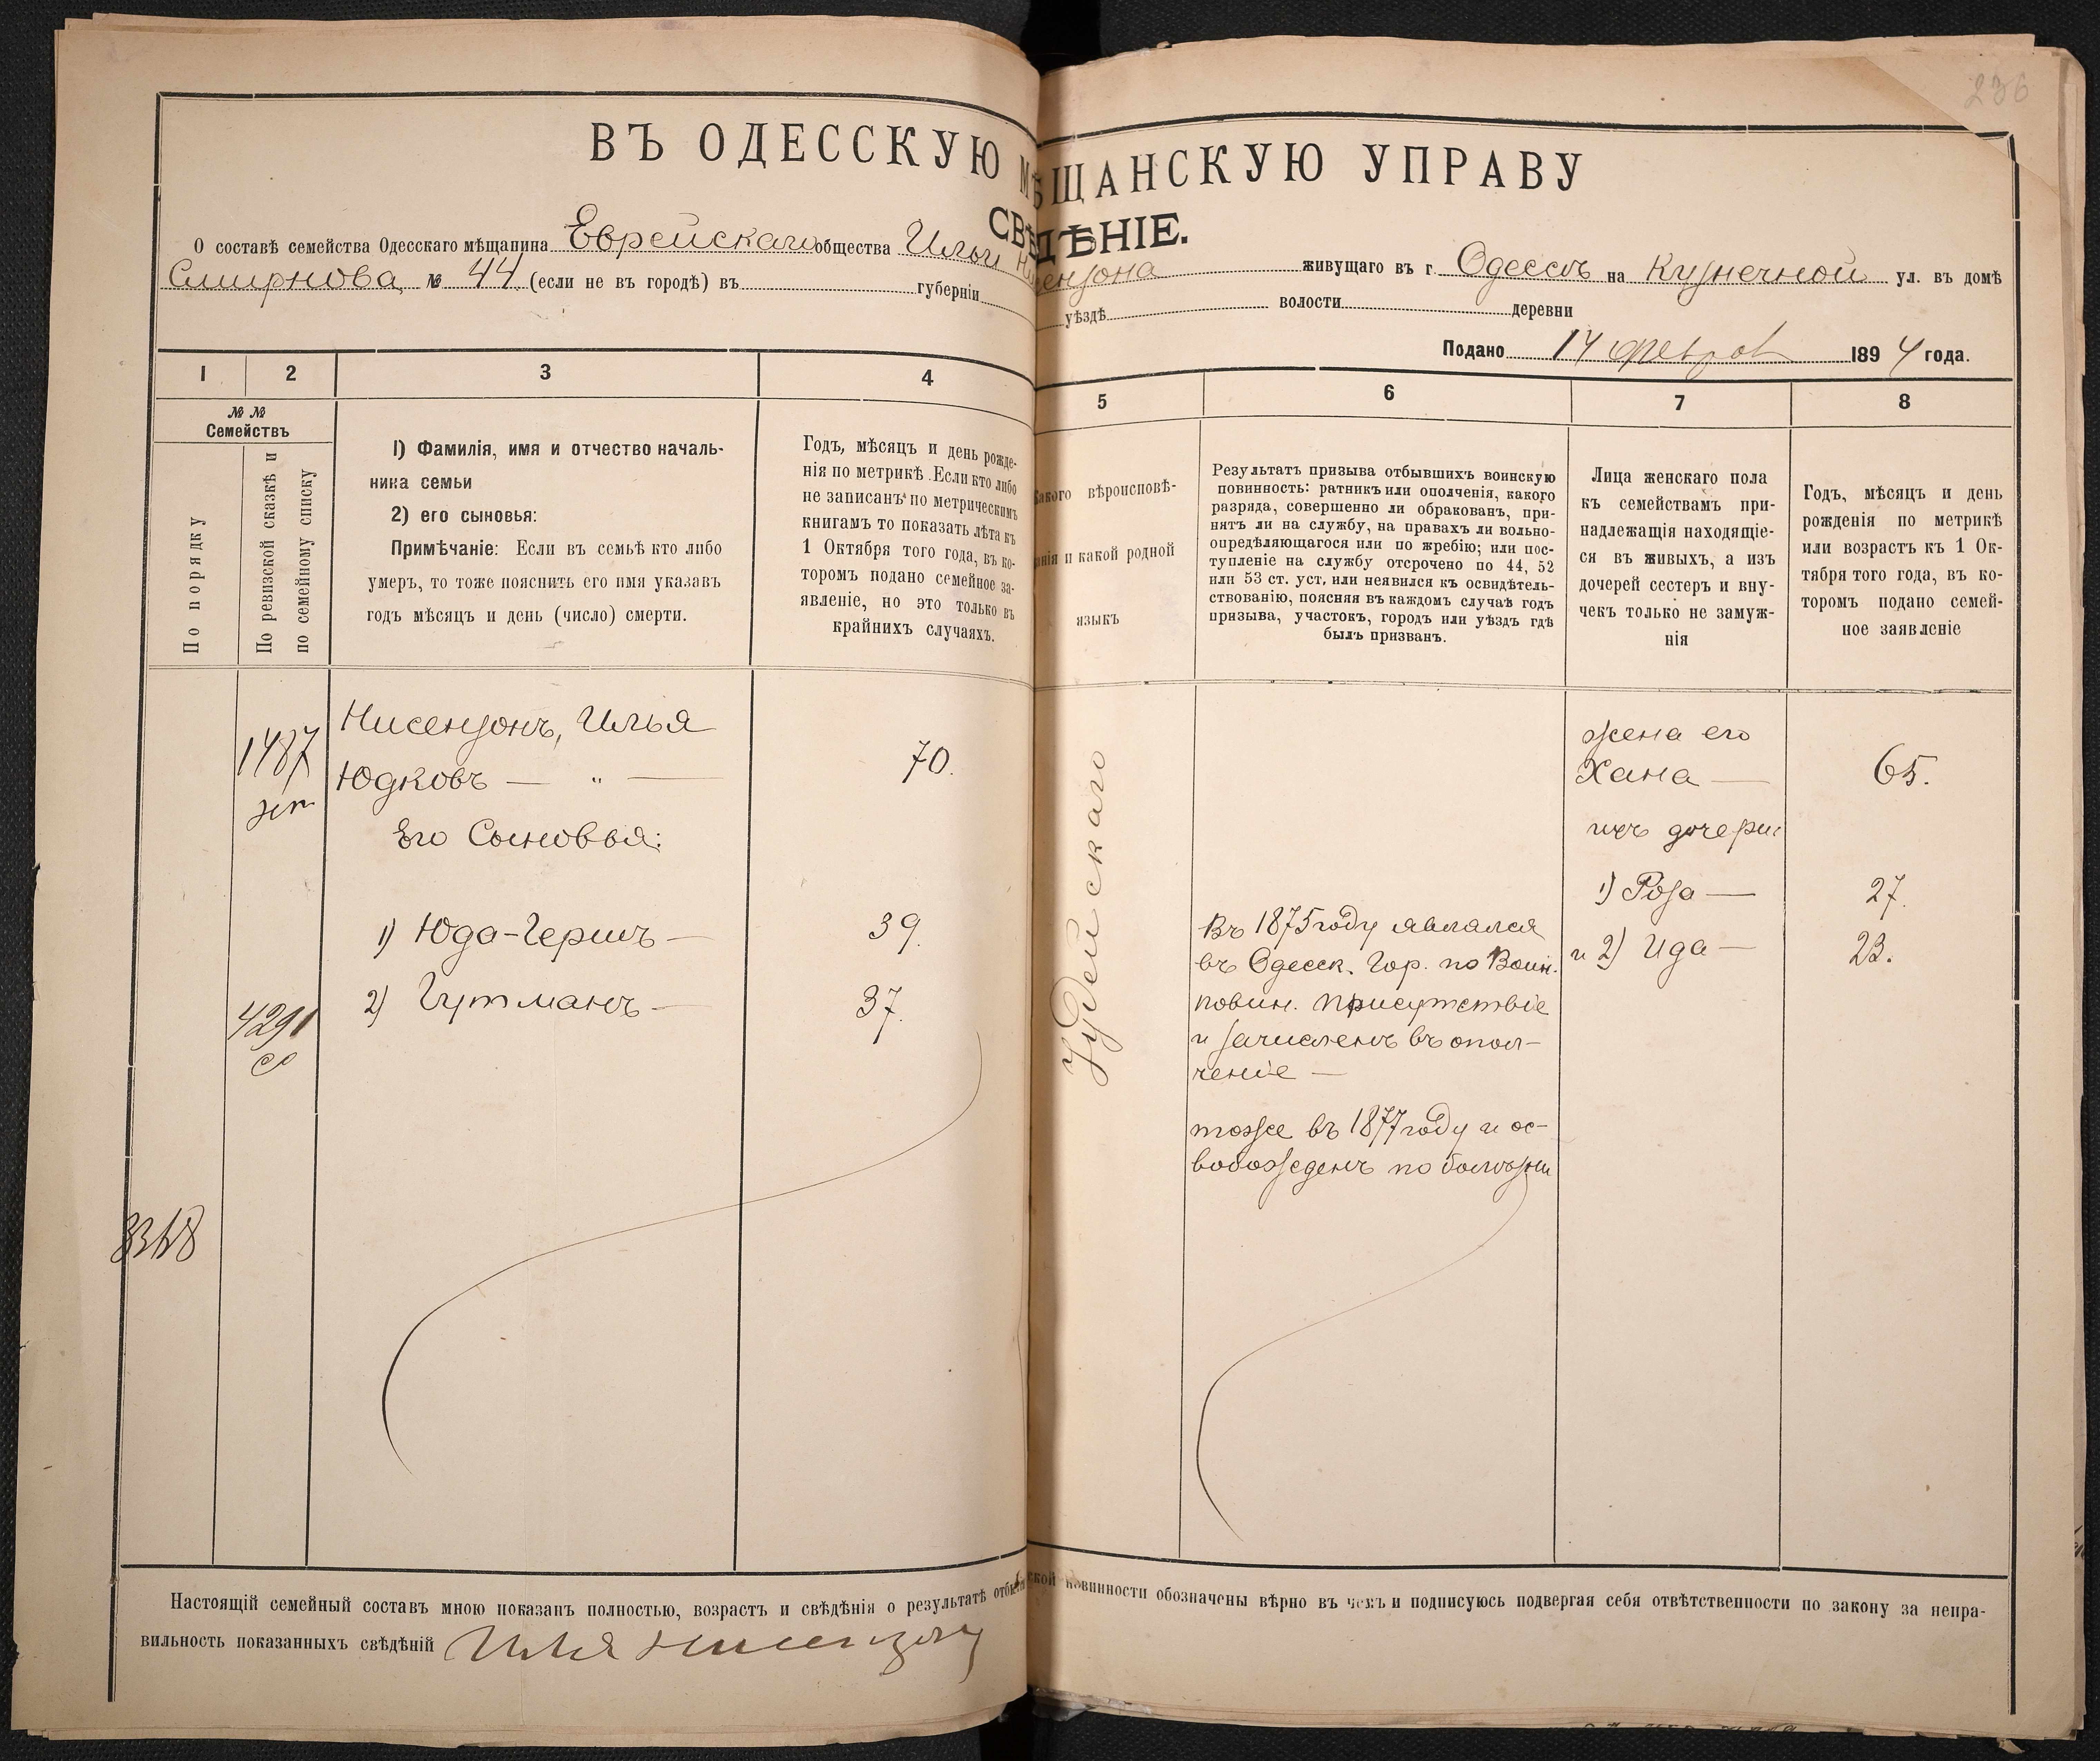 236
ВЪ ОДЕССКУЮ МѢЩАНСКУЮ УПРАВУ
СВѢДѢНІЕ.
О составѣ семейства Одесскаго мѣщанина Еврейскаго общества Ильи Нисензона живущаго въ г. Одессѣ на Кузнечной ул. въ домѣ
Смирнова, № 44 (если не въ городѣ) въ губерніи уѣздѣ волости деревни
Подано 14 феврал 1894 года.
1 2 3 4 5 6 7 8
№ №
Семействъ
По порядку
По ревизской сказкѣ и
по семейному списку
1) Фамилія, имя и отчество началь-
ника семьи
2) его сыновья:
Примѣчаніе: Если въ семьѣ кто либо
умеръ, то тоже пояснить его имя указавъ
годъ мѣсяцъ и день (число) смерти.
Годъ, мѣсяцъ и день рожде-
нія по метрикѣ. Если кто либо
не записанъ по метрическимъ
книгамъ то показать лѣта къ
1 Октября того года, въ ко-
торомъ подано семейное за-
явленіе, но это только въ
крайнихъ случаяхъ.
Какого вѣроисповѣ-
данія и какой родной
языкъ
Результатъ призыва отбывшихъ воинскую
повинность: ратникъ или ополченія, какого
разряда, совершенно ли обракованъ, при-
нятъ ли на службу, на правахъ ли вольно-
опредѣляющагося или по жребію; или пос-
тупленіе на службу отсрочено по 44, 52
или 53 ст. уст, или неявился къ освидѣтель-
ствованію, поясняя въ каждомъ случаѣ годъ
призыва, участокъ, городъ или уѣздъ гдѣ
былъ призванъ.
Лица женскаго пола
къ семействамъ при-
надлежащія находящіе-
ся въ живыхъ, а изъ
дочерей сестеръ и вну-
чекъ только не замуж-
нія
Годъ, мѣсяцъ и день
рожденія по метрикѣ
или возрастъ къ 1 Ок-
тября того года, въ ко-
торомъ подано семей-
ное заявленіе
1487
Нисензонъ, Илья
Юдковъ — " —
70.
Его Сыновья:
1) Юда-Гершъ —
39.
2) Гутманъ —
37.
4291
8368
Іудейскаго
Въ 1875 году являлся
въ Одесск. Гор. по Воин.
повин. Присутствіе
и зачисленъ въ опол-
ченіе —
тоже въ 1877 году и ос-
вобожденъ по болѣзни
жена его
Хана —
65.
ихъ дочери
1) Роза —
27.
и 2) Ида —
23.
Настоящій семейный составъ мною показанъ полностью, возрастъ и свѣдѣнія о результатѣ повинности обозначены вѣрно въ чемъ и подписуюсь подвергая себя отвѣтственности по закону за непра-
вильность показанныхъ свѣдѣній Илья Нисензонъ